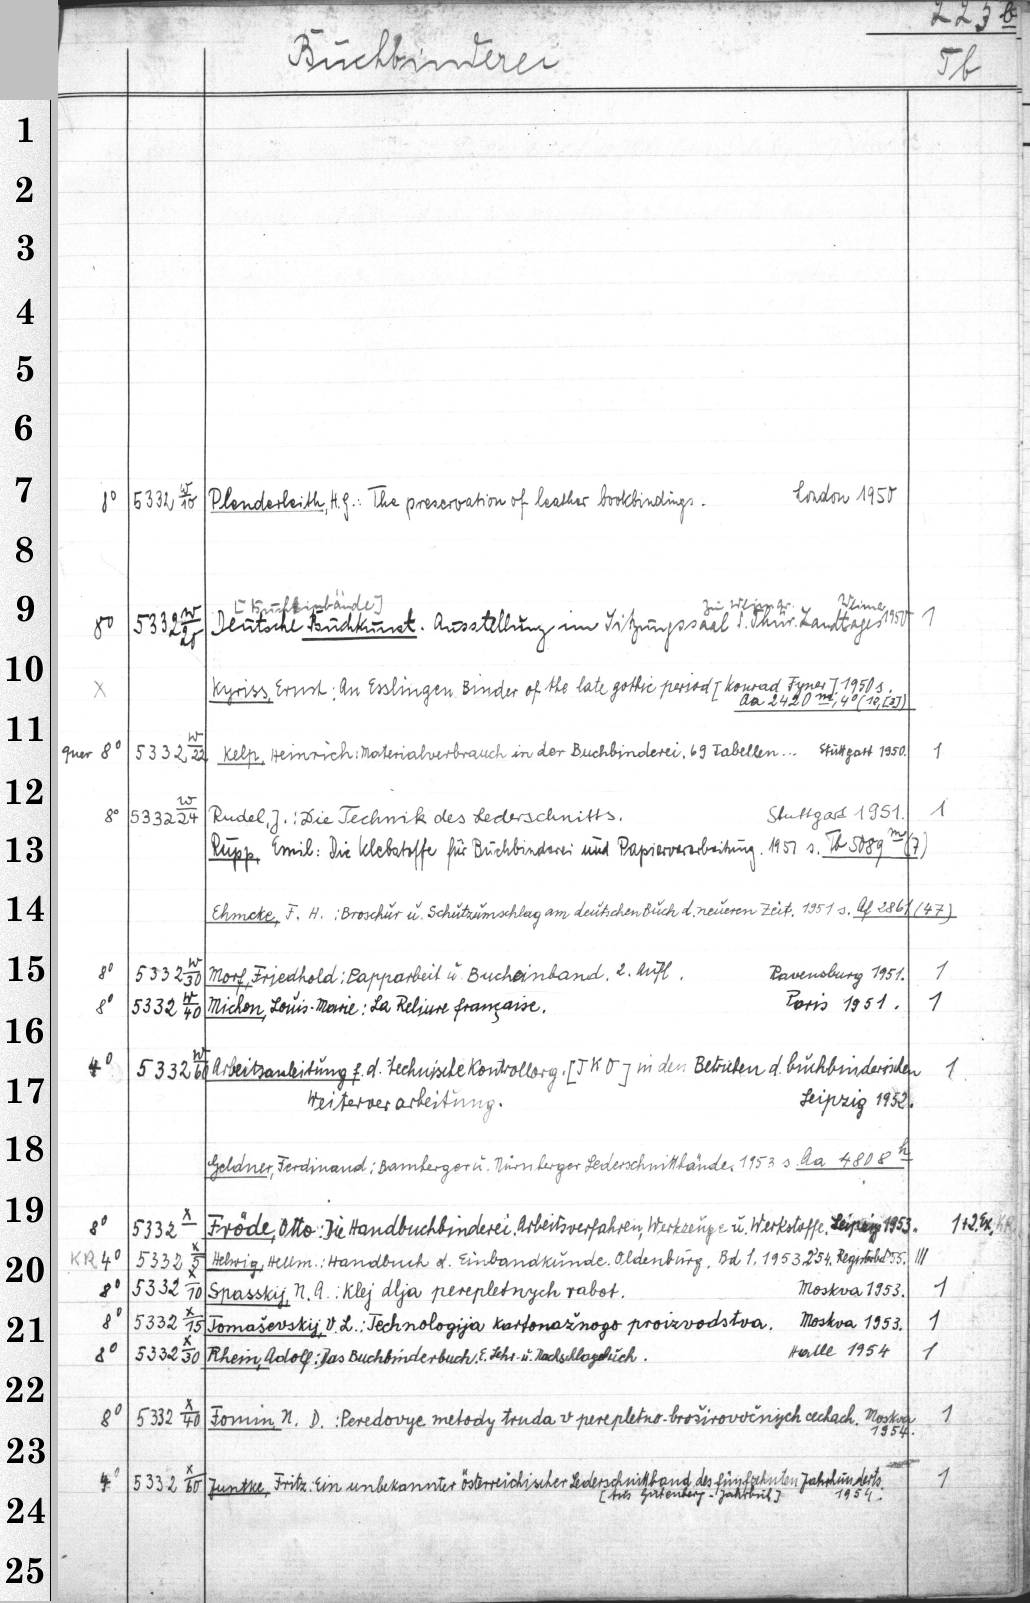 223 b
Buchbinderei Tb
1
2
3
4
5
6
7 8° 5332 w/10 Plenderleith, H. J.: The preservation of leather bookbindings. London 1950
8
[Kunsteinbände] zu Weimar. Weimar
9 8° 5332 w/20 Deutsche Buchkunst. Ausstellung im Sitzungssaal d. Thür. Landtages 1950 1
10 X Kyriss, Ernst: An Esslingen Binder of the late gothic period [Konrad Fyner] 1950 s.
Aa 2420 m, 4° (10,[3])
11 quer 8° 5332 w/22 Kelp, Heinrich: Materialverbrauch in der Buchbinderei. 69 Tabellen... Stuttgart 1950. 1
12 8° 5332 w/24 Rudel, J.: Die Technik des Lederschnitts. Stuttgart 1951. 1
13 Rupp, Emil: Die Klebstoffe für Buchbinderei und Papierverarbeitung. 1951 s. Tb 5089 m (7)
14 Ehmcke, F. H.: Broschür u. Schutzumschlag am deutschen Buch d. neueren Zeit. 1951 s. Af 2861 (47)
15 8° 5332 w/30 Morf, Friedhold: Papparbeit u. Bucheinband. 2. Aufl. Ravensburg 1951. 1
8° 5332 w/40 Michon, Louis-Marie: La Reliure française. Paris 1951. 1
16
4° 5332 w/60 Arbeitsanleitung f. d. technische Kontrollorg. [TKO] in den Betrieben d. buchbinderischen 1
17 Weiterverarbeitung. Leipzig 1952.
18 Geldner, Ferdinand: Bamberger u. Nürnberger Lederschnittbände. 1953 s. Aa 4808 h
19 8° 5332 x Fröde, Otto: Die Handbuchbinderei. Arbeitsverfahren, Werkzeuge u. Werkstoffe. Leipzig 1953. 1+2.Ex. KR
20 KR 4° 5332 x/5 Helwig, Hellm.: Handbuch d. Einbandkunde. Oldenburg. Bd 1. 1953. 2 54. Registerbd 55. III
8° 5332 x/10 Spasskij, N. A.: Klej dlja perepletnych rabot. Moskva 1953. 1
21 8° 5332 x/15 Tomaševskij, V. L.: Technologija kartonažnogo proizvodstva. Moskva 1953. 1
8° 5332 x/30 Rhein, Adolf: Das Buchbinderbuch. E. Lehr- u. Nachschlagebuch. Halle 1954 1
22
8° 5332 x/40 Fomin, N. D.: Peredovye metody truda v perepletno-brošürovočnych cechach. Moskva 1
1954.
23
4° 5332 x/60 Juntke, Fritz: Ein unbekannter österreichischer Lederschnittband des fünfzehnten Jahrhunderts. 1
[Aus Gutenberg-Jahrbuch] 1954.
24
25